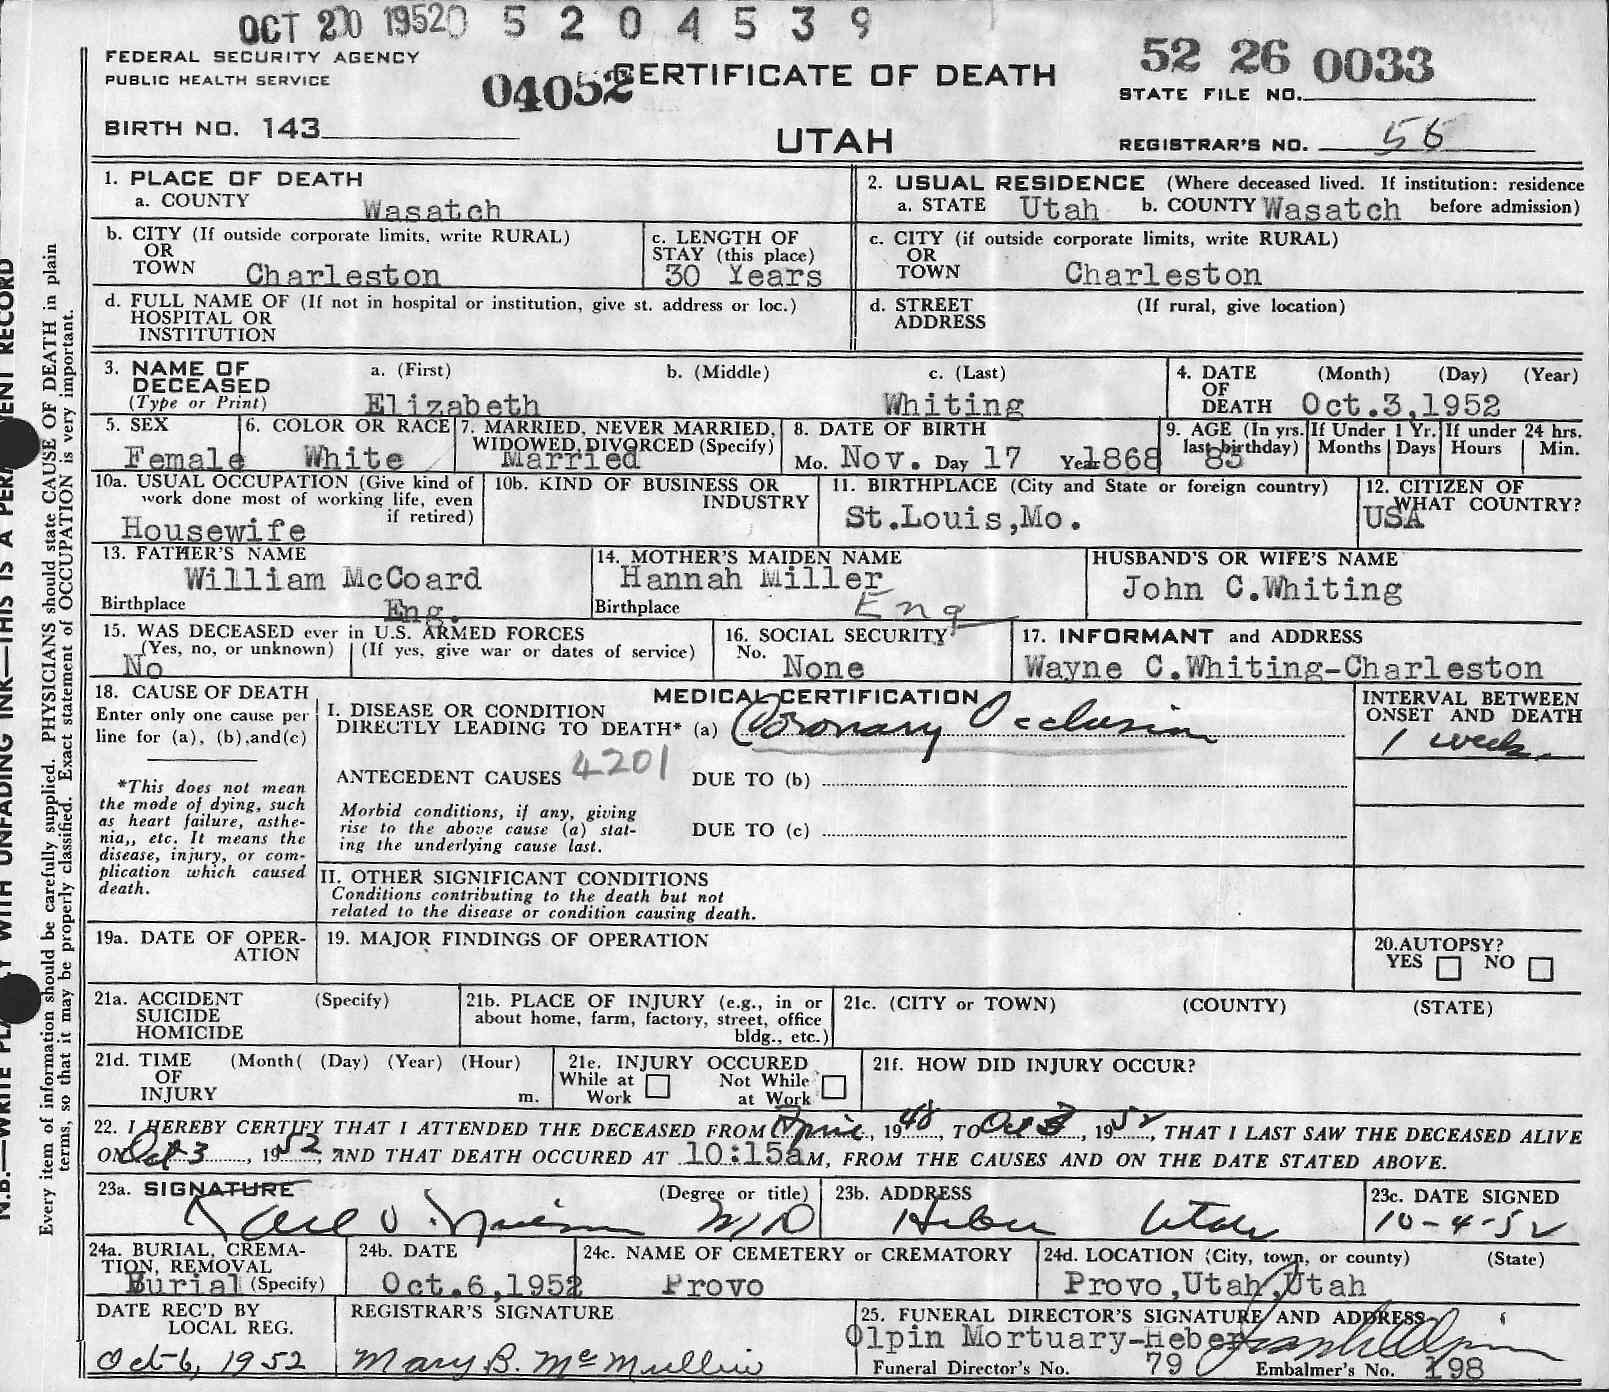 OCT 20 1952 0 5 2 0 4 5 3 9
FEDERAL SECURITY AGENCY
PUBLIC HEALTH SERVICE
04052
CERTIFICATE OF DEATH
52 26 0033
STATE FILE NO.
BIRTH NO. 143
UTAH
REGISTRAR'S NO. 56
1. PLACE OF DEATH
a. COUNTY Wasatch
2. USUAL RESIDENCE (Where deceased lived. If institution: residence before admission)
a. STATE Utah b. COUNTY Wasatch
b. CITY (If outside corporate limits, write RURAL)
OR
TOWN Charleston
c. LENGTH OF
STAY (this place)
30 Years
c. CITY (if outside corporate limits, write RURAL)
OR
TOWN Charleston
d. FULL NAME OF (If not in hospital or institution, give st. address or loc.)
HOSPITAL OR
INSTITUTION
d. STREET (If rural, give location)
ADDRESS
3. NAME OF
DECEASED
(Type or Print)
a. (First) b. (Middle) c. (Last)
Elizabeth Whiting
4. DATE (Month) (Day) (Year)
OF
DEATH Oct.3,1952
5. SEX
Female
6. COLOR OR RACE
White
7. MARRIED, NEVER MARRIED,
WIDOWED, DIVORCED (Specify)
Married
8. DATE OF BIRTH
Mo. Nov. Day 17 Year 1868
9. AGE (In yrs.
last birthday)
83
If Under 1 Yr.
Months Days
If under 24 hrs.
Hours Min.
10a. USUAL OCCUPATION (Give kind of
work done most of working life, even
if retired)
Housewife
10b. KIND OF BUSINESS OR
INDUSTRY
11. BIRTHPLACE (City and State or foreign country)
St.Louis,Mo.
12. CITIZEN OF
WHAT COUNTRY?
USA
13. FATHER'S NAME
William McCoard
Birthplace Eng.
14. MOTHER'S MAIDEN NAME
Hannah Miller
Birthplace Eng
HUSBAND'S OR WIFE'S NAME
John C.Whiting
15. WAS DECEASED ever in U.S. ARMED FORCES
(Yes, no, or unknown) (If yes, give war or dates of service)
No
16. SOCIAL SECURITY
No. None
17. INFORMANT and ADDRESS
Wayne C.Whiting-Charleston
18. CAUSE OF DEATH
Enter only one cause per
line for (a), (b), and (c)
*This does not mean
the mode of dying, such
as heart failure, asthe-
nia,, etc. It means the
disease, injury, or com-
plication which caused
death.
MEDICAL CERTIFICATION
I. DISEASE OR CONDITION
DIRECTLY LEADING TO DEATH* (a) Coronary Occlusion
INTERVAL BETWEEN
ONSET AND DEATH
1 week
ANTECEDENT CAUSES 4201 DUE TO (b)
Morbid conditions, if any, giving
rise to the above cause (a) stat-
ing the underlying cause last.
DUE TO (c)
II. OTHER SIGNIFICANT CONDITIONS
Conditions contributing to the death but not
related to the disease or condition causing death.
19a. DATE OF OPER-
ATION
19. MAJOR FINDINGS OF OPERATION
20. AUTOPSY?
YES NO
21a. ACCIDENT (Specify)
SUICIDE
HOMICIDE
21b. PLACE OF INJURY (e.g., in or
about home, farm, factory, street, office
bldg., etc.)
21c. (CITY or TOWN) (COUNTY) (STATE)
21d. TIME (Month( (Day) (Year) (Hour)
OF
INJURY m.
21e. INJURY OCCURED
While at Work Not While at Work
21f. HOW DID INJURY OCCUR?
22. I HEREBY CERTIFY THAT I ATTENDED THE DECEASED FROM , 1948, TO Oct 3, 1952, THAT I LAST SAW THE DECEASED ALIVE
ON Oct 3, 1952, AND THAT DEATH OCCURED AT 10:15a M, FROM THE CAUSES AND ON THE DATE STATED ABOVE.
23a. SIGNATURE (Degree or title)
MD
23b. ADDRESS
Heber Utah
23c. DATE SIGNED
10-4-52
24a. BURIAL, CREMA-
TION, REMOVAL
Burial (Specify)
24b. DATE
Oct.6,1952
24c. NAME OF CEMETERY or CREMATORY
Provo
24d. LOCATION (City, town, or county) (State)
Provo,Utah,Utah
DATE REC'D BY
LOCAL REG.
Oct 6, 1952
REGISTRAR'S SIGNATURE
Mary B. McMullin
25. FUNERAL DIRECTOR'S SIGNATURE AND ADDRESS
Olpin Mortuary-Heber
Funeral Director's No. 79 Embalmer's No. 198
Every item of information should be carefully supplied. PHYSICIANS should state CAUSE OF DEATH in plain
terms, so that it may be properly classified. Exact statement of OCCUPATION is very important.